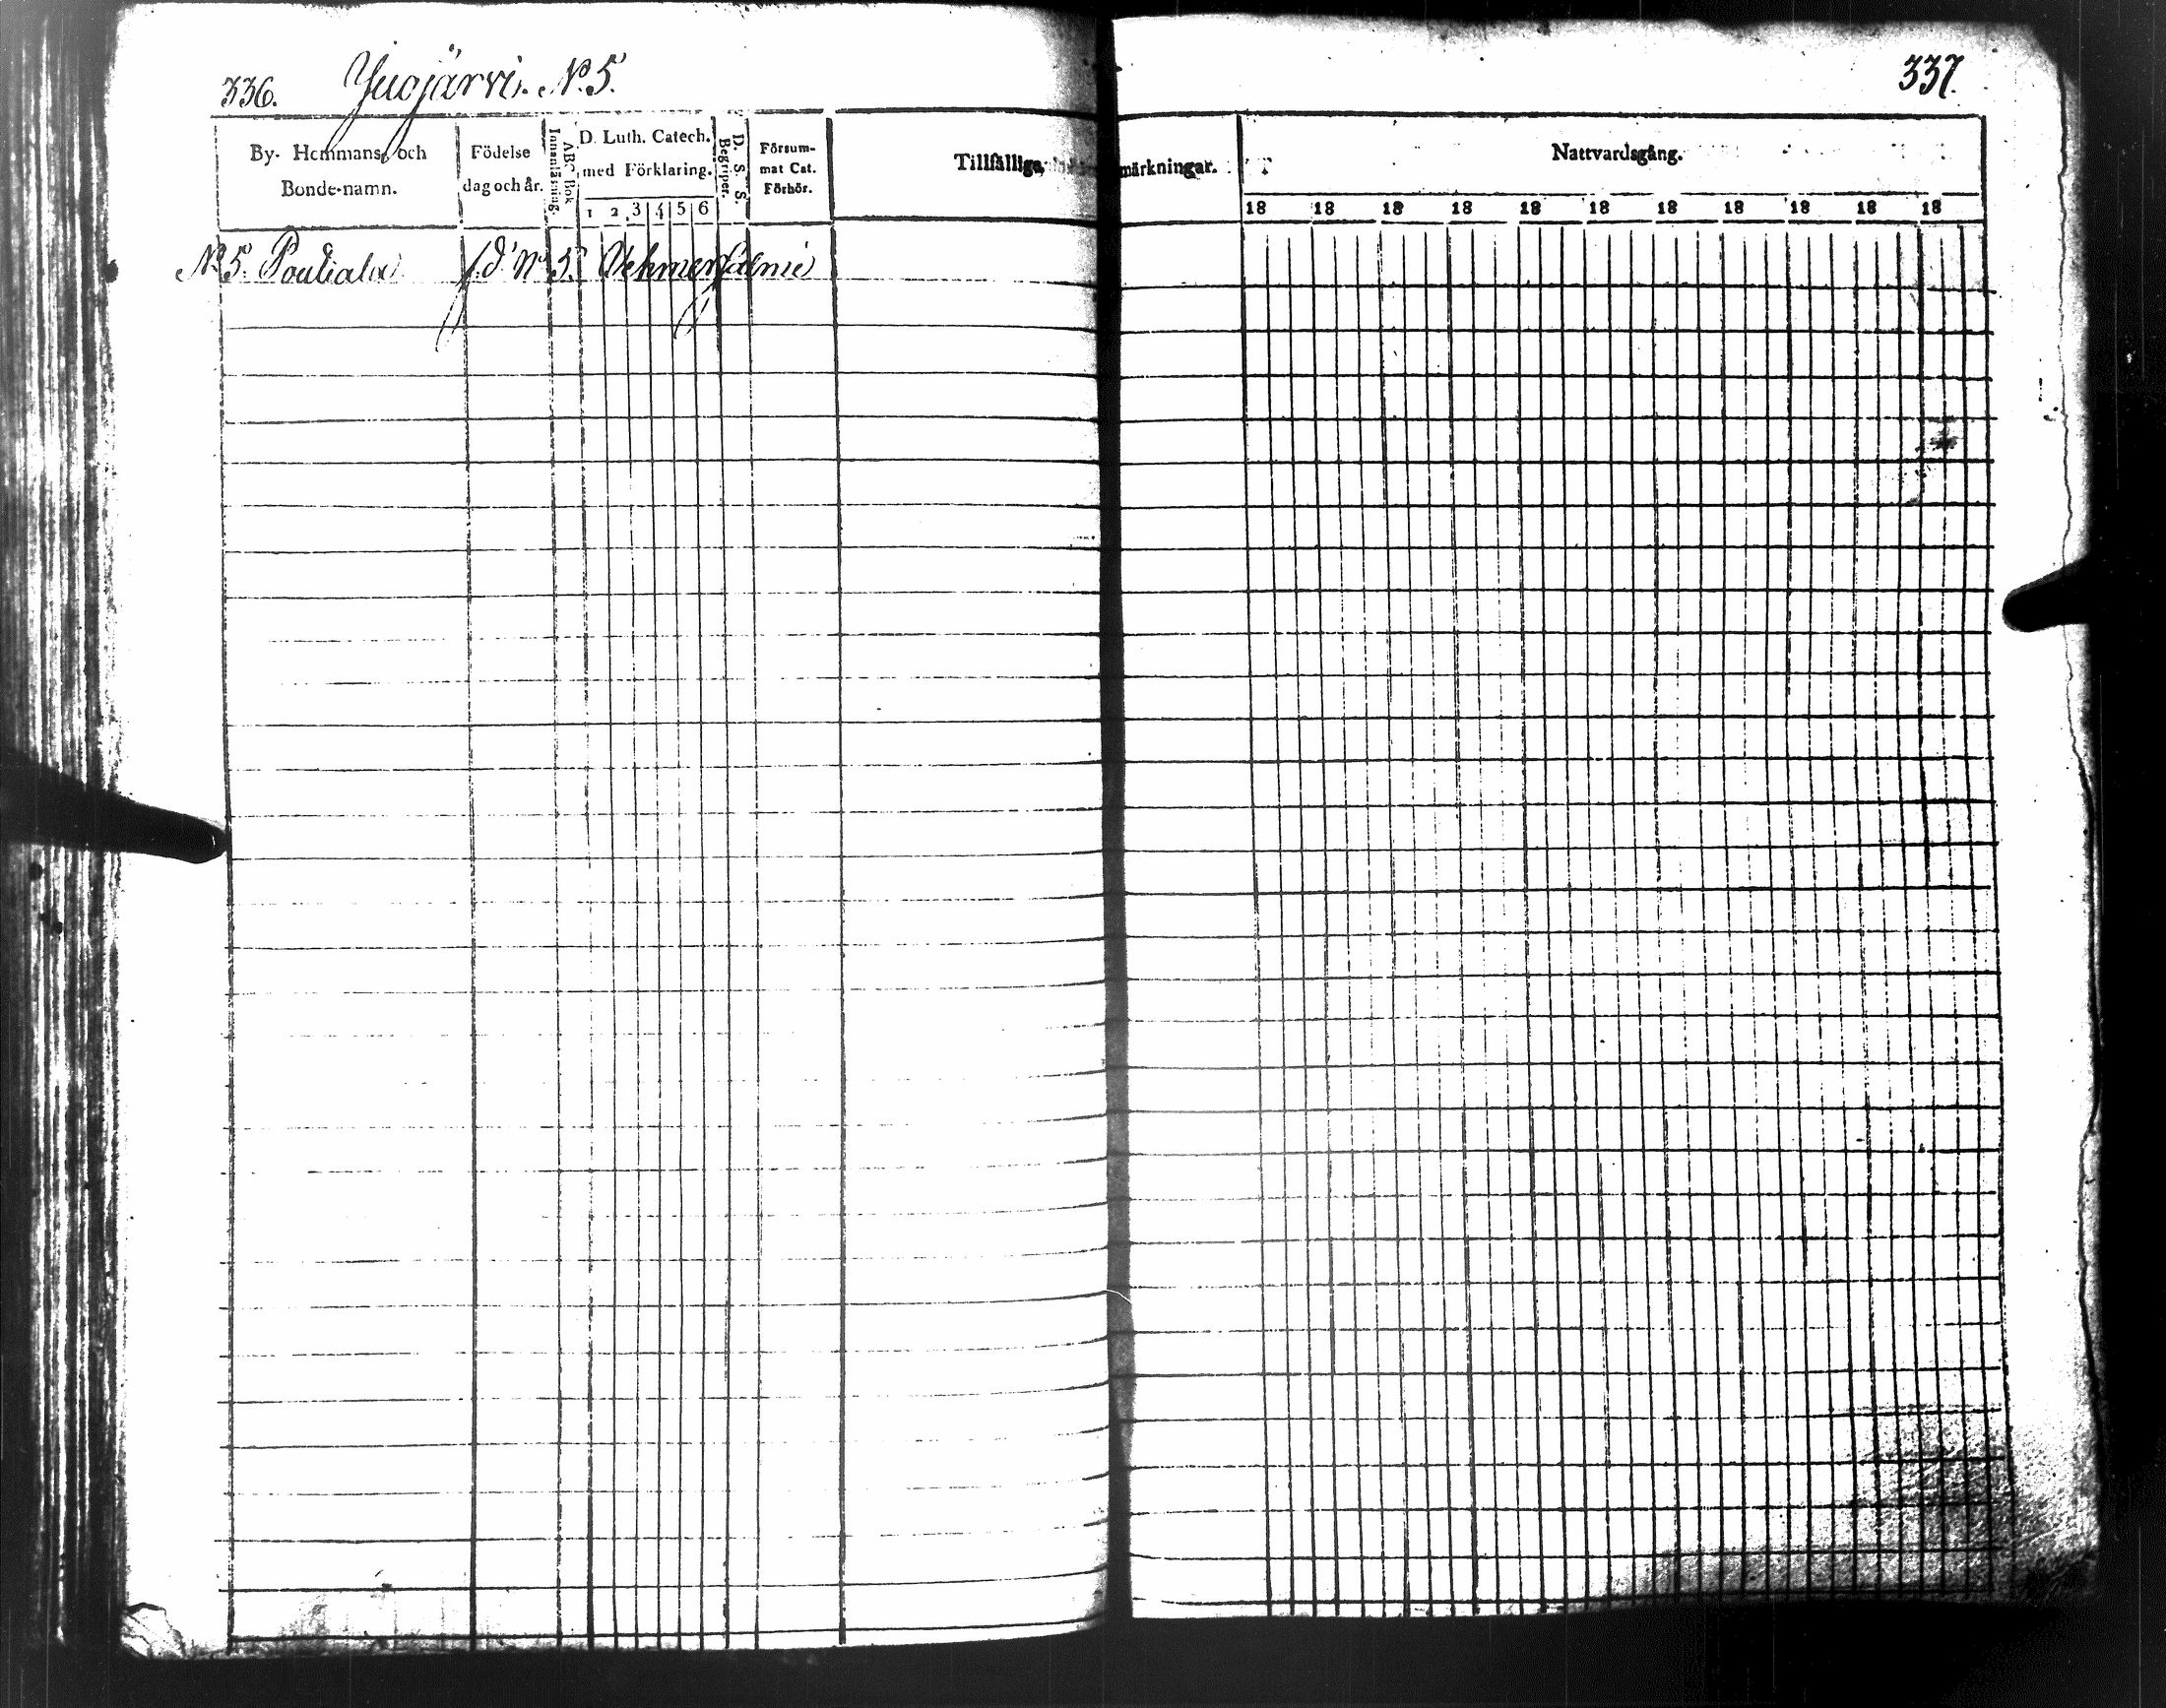 336. Juojärvi. N:5.
337.
By- Hemmans, och Bonde-namn.
Födelse dag och år.
Innanläsning.
ABC Bok
D. Luth. Catech. med Förklaring.
1 2 3 4 5 6
D. S. S. Begriper.
Försummat Cat. Förhör.
Tillfälliga märkningar.
Nattvardsgång.
18 18 18 18 18 18 18 18 18 18 18
N:5. Poutiala N:5. Vehmersalmi